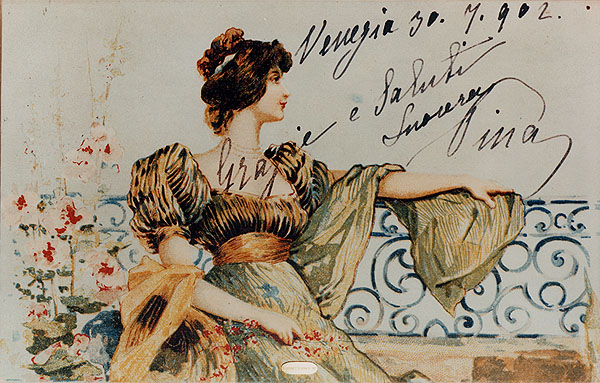 Venezia 30. 7. 902.
Grazie e Saluti
Pina